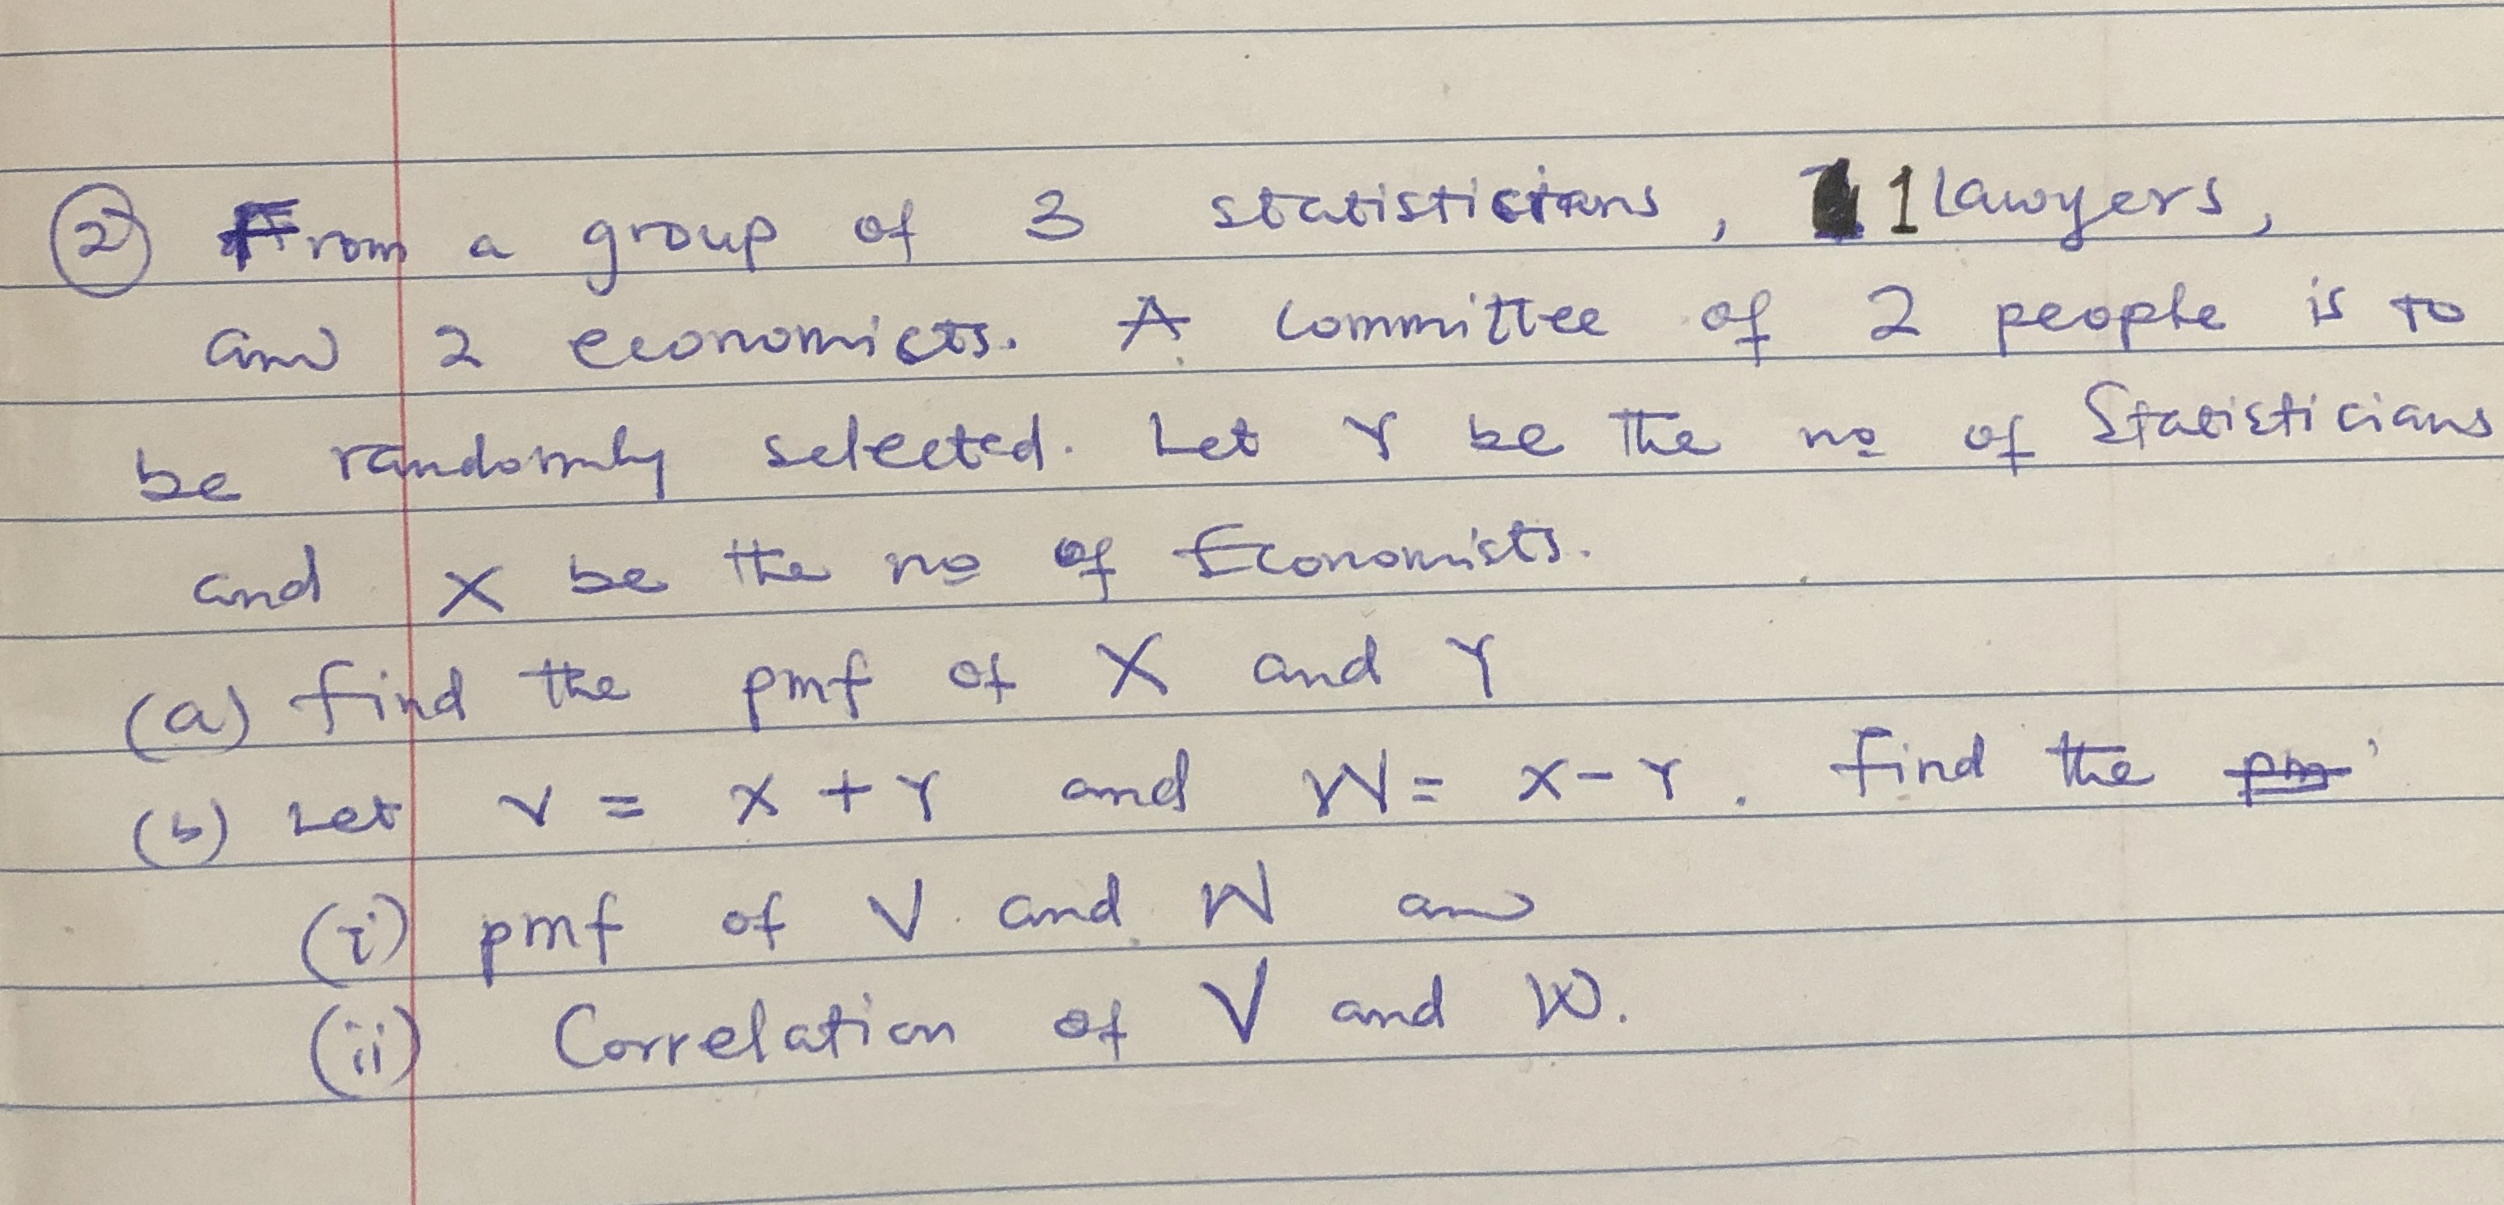 ② From a group of 3 statisticians, 1 Lawyers,
and 2 economists. A committee of 2 people is to
be randomly selected. Let Y be the no of Statisticians
and X be the no of Economists.
(a) find the pmf of X and Y
(b) Let V = X + Y and W = X - Y. Find the
(i) pmf of V and W and
(ii) Correlation of V and W.